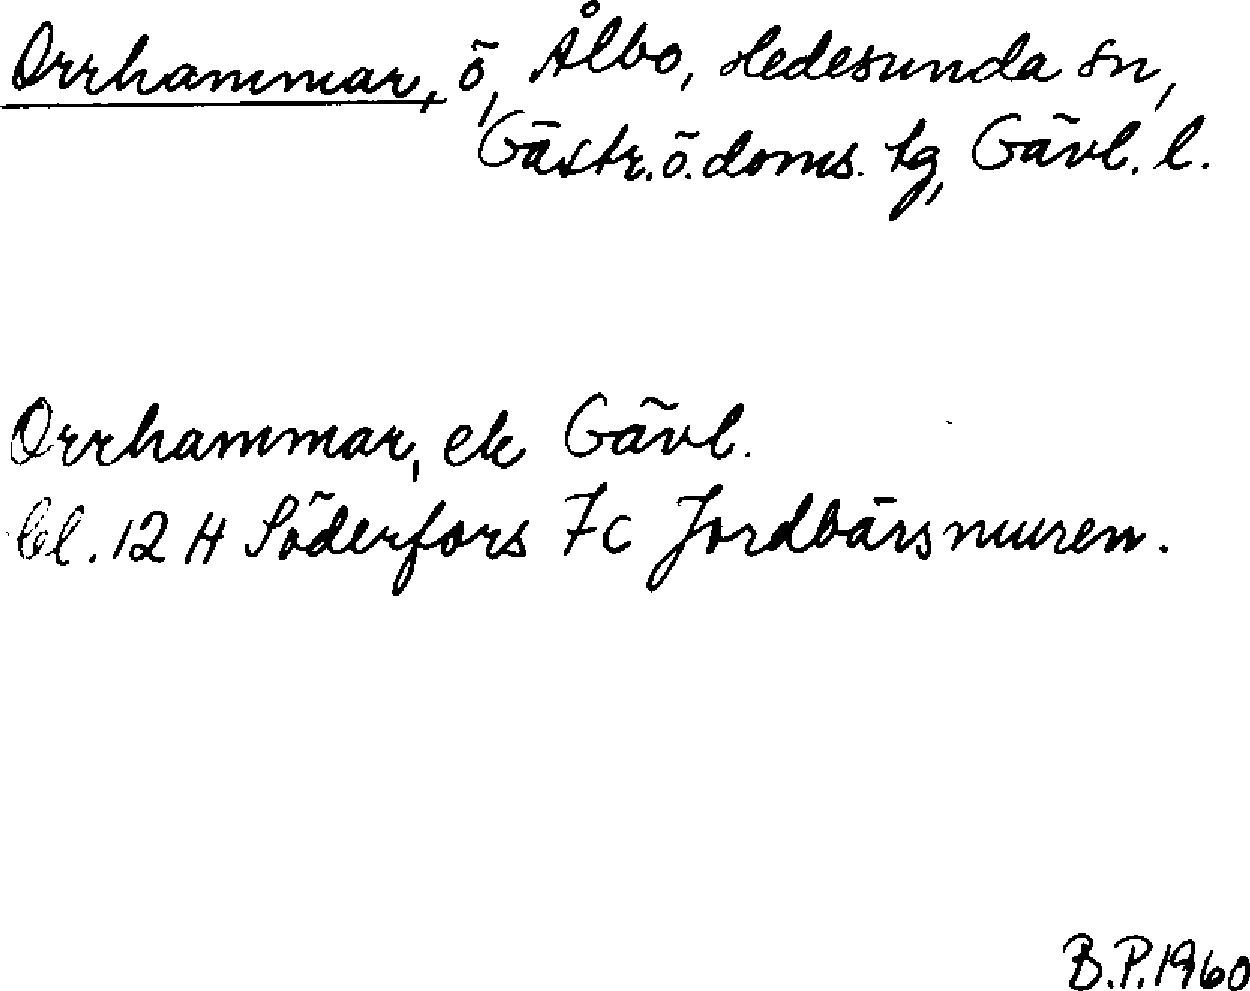 Orrhammar, ö, Ålbo, Hedesunda sn,
Gästr. ö. doms. tg, Gävl. l.
Orrhammar, ek Gävl.
bl. 12 H Söderfors 7c Jordbärsmuren.
B.P. 1960